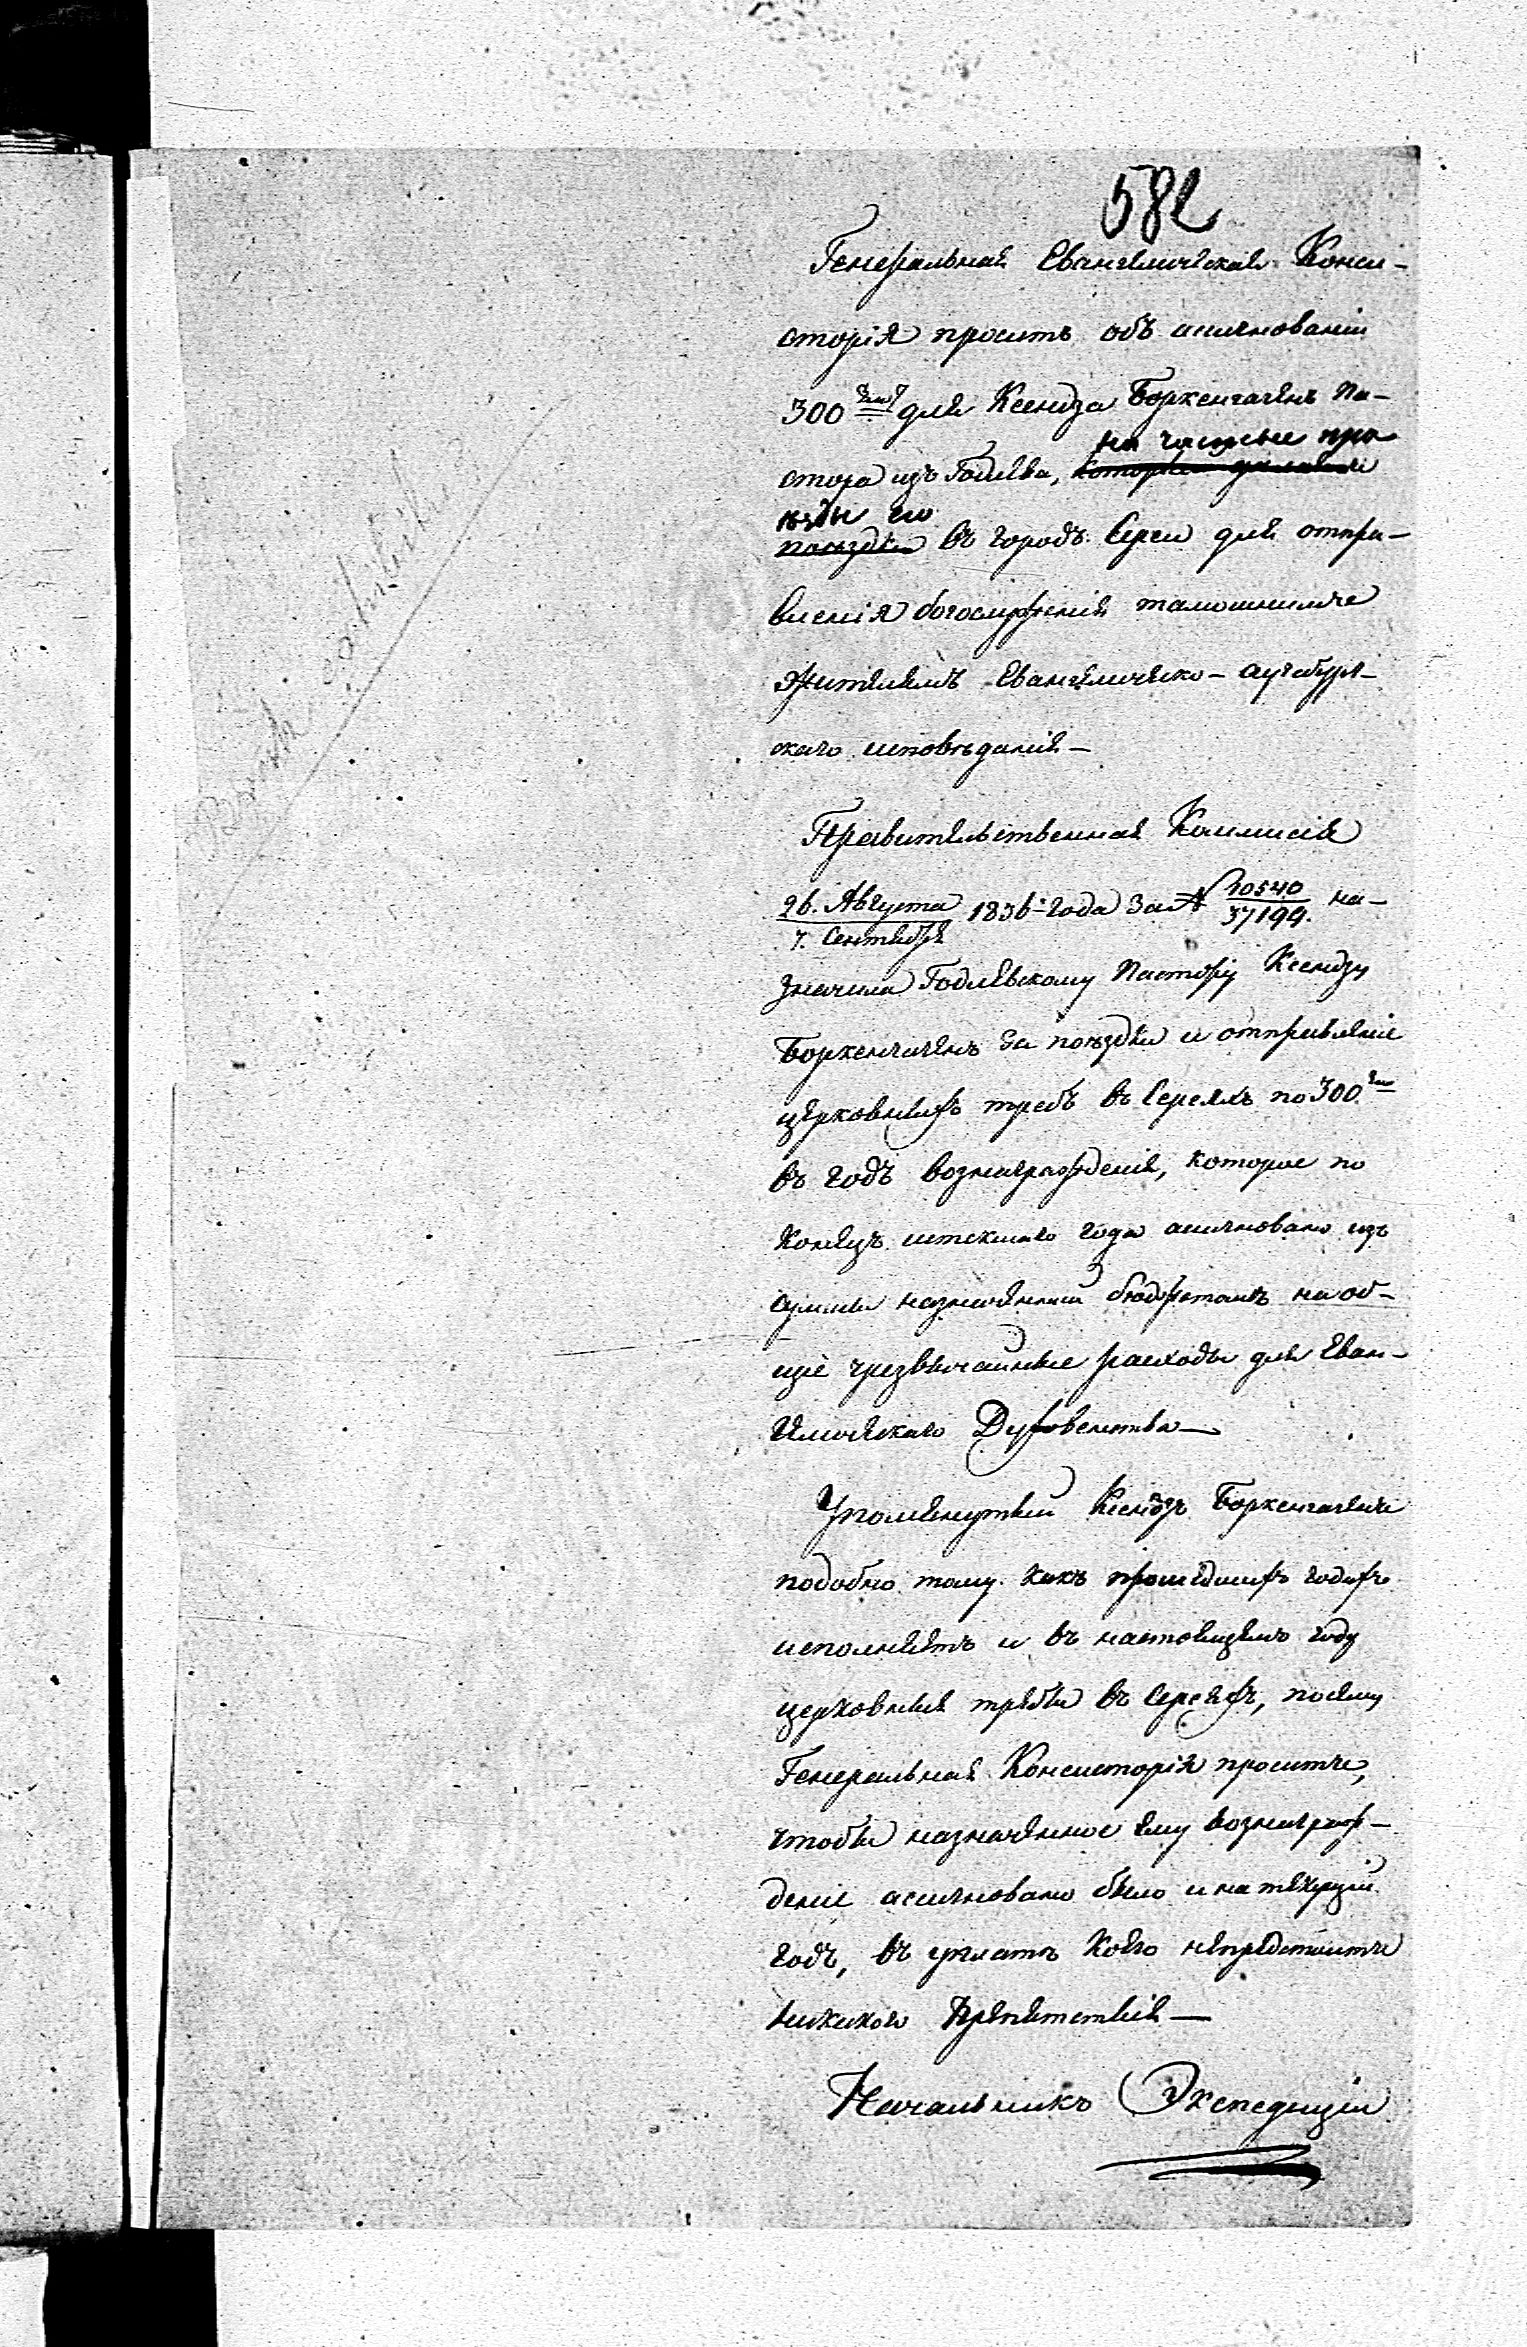 582
Генеральная Евангелическая Конси-
сторія проситъ объ асигнованіи
300 злот. для Ксендза Боркенгагенъ Па-
на частые про
стора изъ Годлева,
ѣзды его
поѣздки въ городъ Сереи для отпра-
вленія богослуженія тамошнимъ
жителямъ Евангелическо-аугсбург-
скаго исповѣданія —
Правительственная Коммисія
26. Августа / 7. Сентября 1836 года За № 10540 / 37194. на-
значила Годлевскому Пастору Ксендзу
Боркенгагенъ за поѣздки и отправленіе
церковныхъ требъ въ Сереяхъ по 300 зло
въ годъ вознагражденія, которое по
Конецъ истекшаго года асигновано изъ
суммы назначенной бюджетомъ на об-
щіе чрезвычайные расходы для Еван-
гелическаго Духовенства —
Упомянутый Ксендзъ Боркенгагенъ
подобно тому какъ прошедшихъ годахъ
исполняетъ и въ настоящемъ году
церковныя требы въ Сереяхъ, посему
Генеральная Консисторія проситъ,
чтобы назначенное ему вознаграж-
деніе асигновано было и на текущій
годъ, въ уплатѣ коего непредстоитъ
никакого препятствія —
Начальникъ Экспедиціи